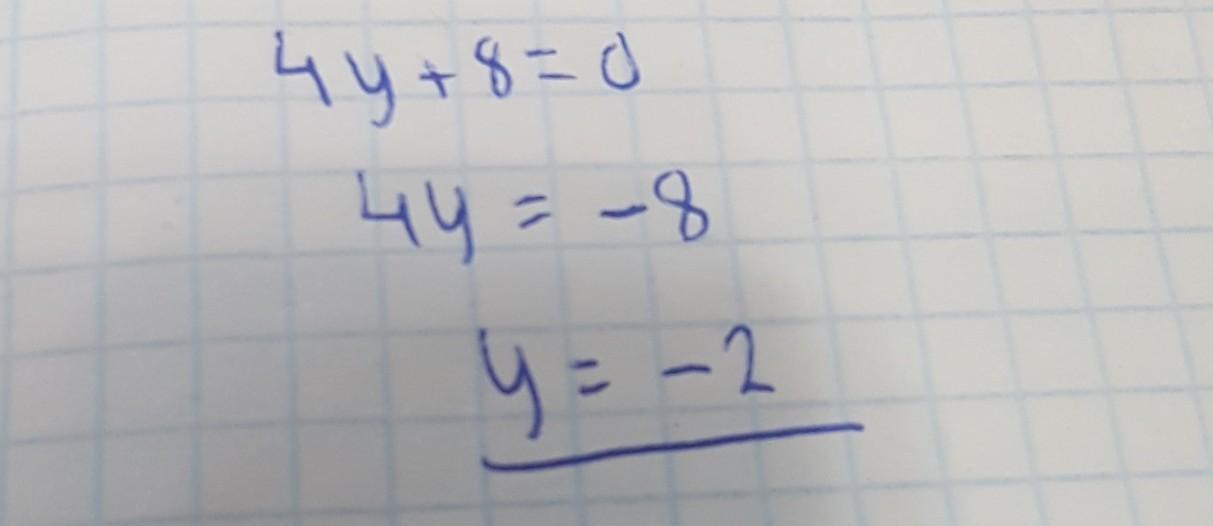 4y+8=0
4y = -8
y = -2